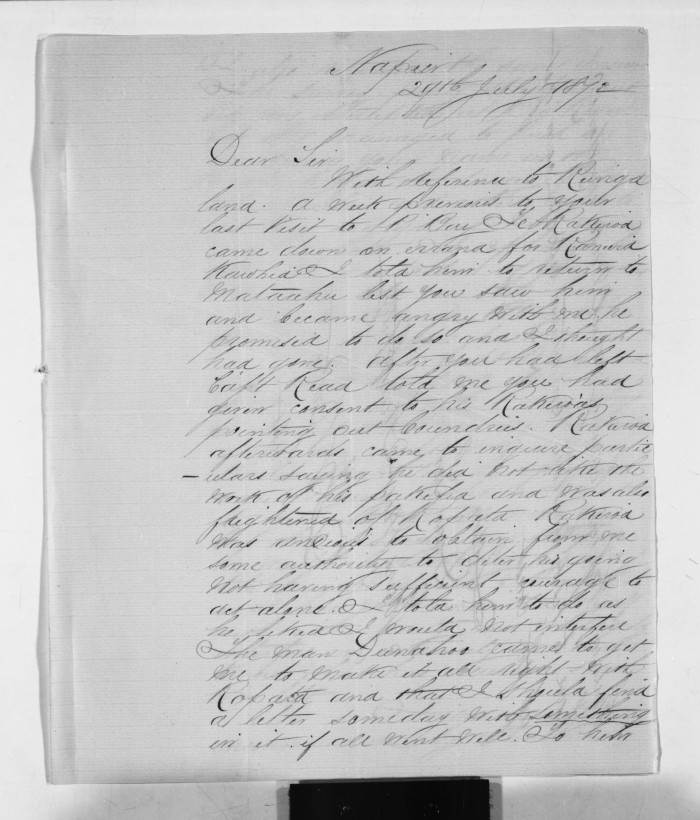 Napier
29th July 1872
Dear Sir
With reference to
land. A week previous to your
last visit to P. Bay
came down on errand for
I told him to return to
Mataahu lest you saw him
and became angry with me he
promised to do so and I thought
had gone. After you had left
Capt Read told me you had
given consent to his Rakuroa's
pointing out boundries. Rakuroa
afterwards came to inquire partic
-ulars saying he did not like the
work of his pakeha and was also
frightened of Ropata Rakuroa
was anxious to obtain from me
some authority to deter his going
not having sufficient courage to
act alone. I told him to do as
he liked I would not interfere
The man Dunahoo came to get
me to make it all right with
Ropata and that I should find
a letter someday with something
in it if all went well. To him